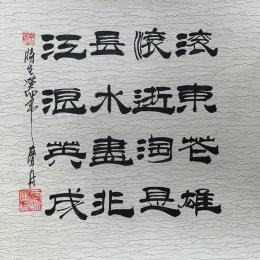 滚滚長江
東逝水浪
花淘盡英
雄是非成
時在癸卯年